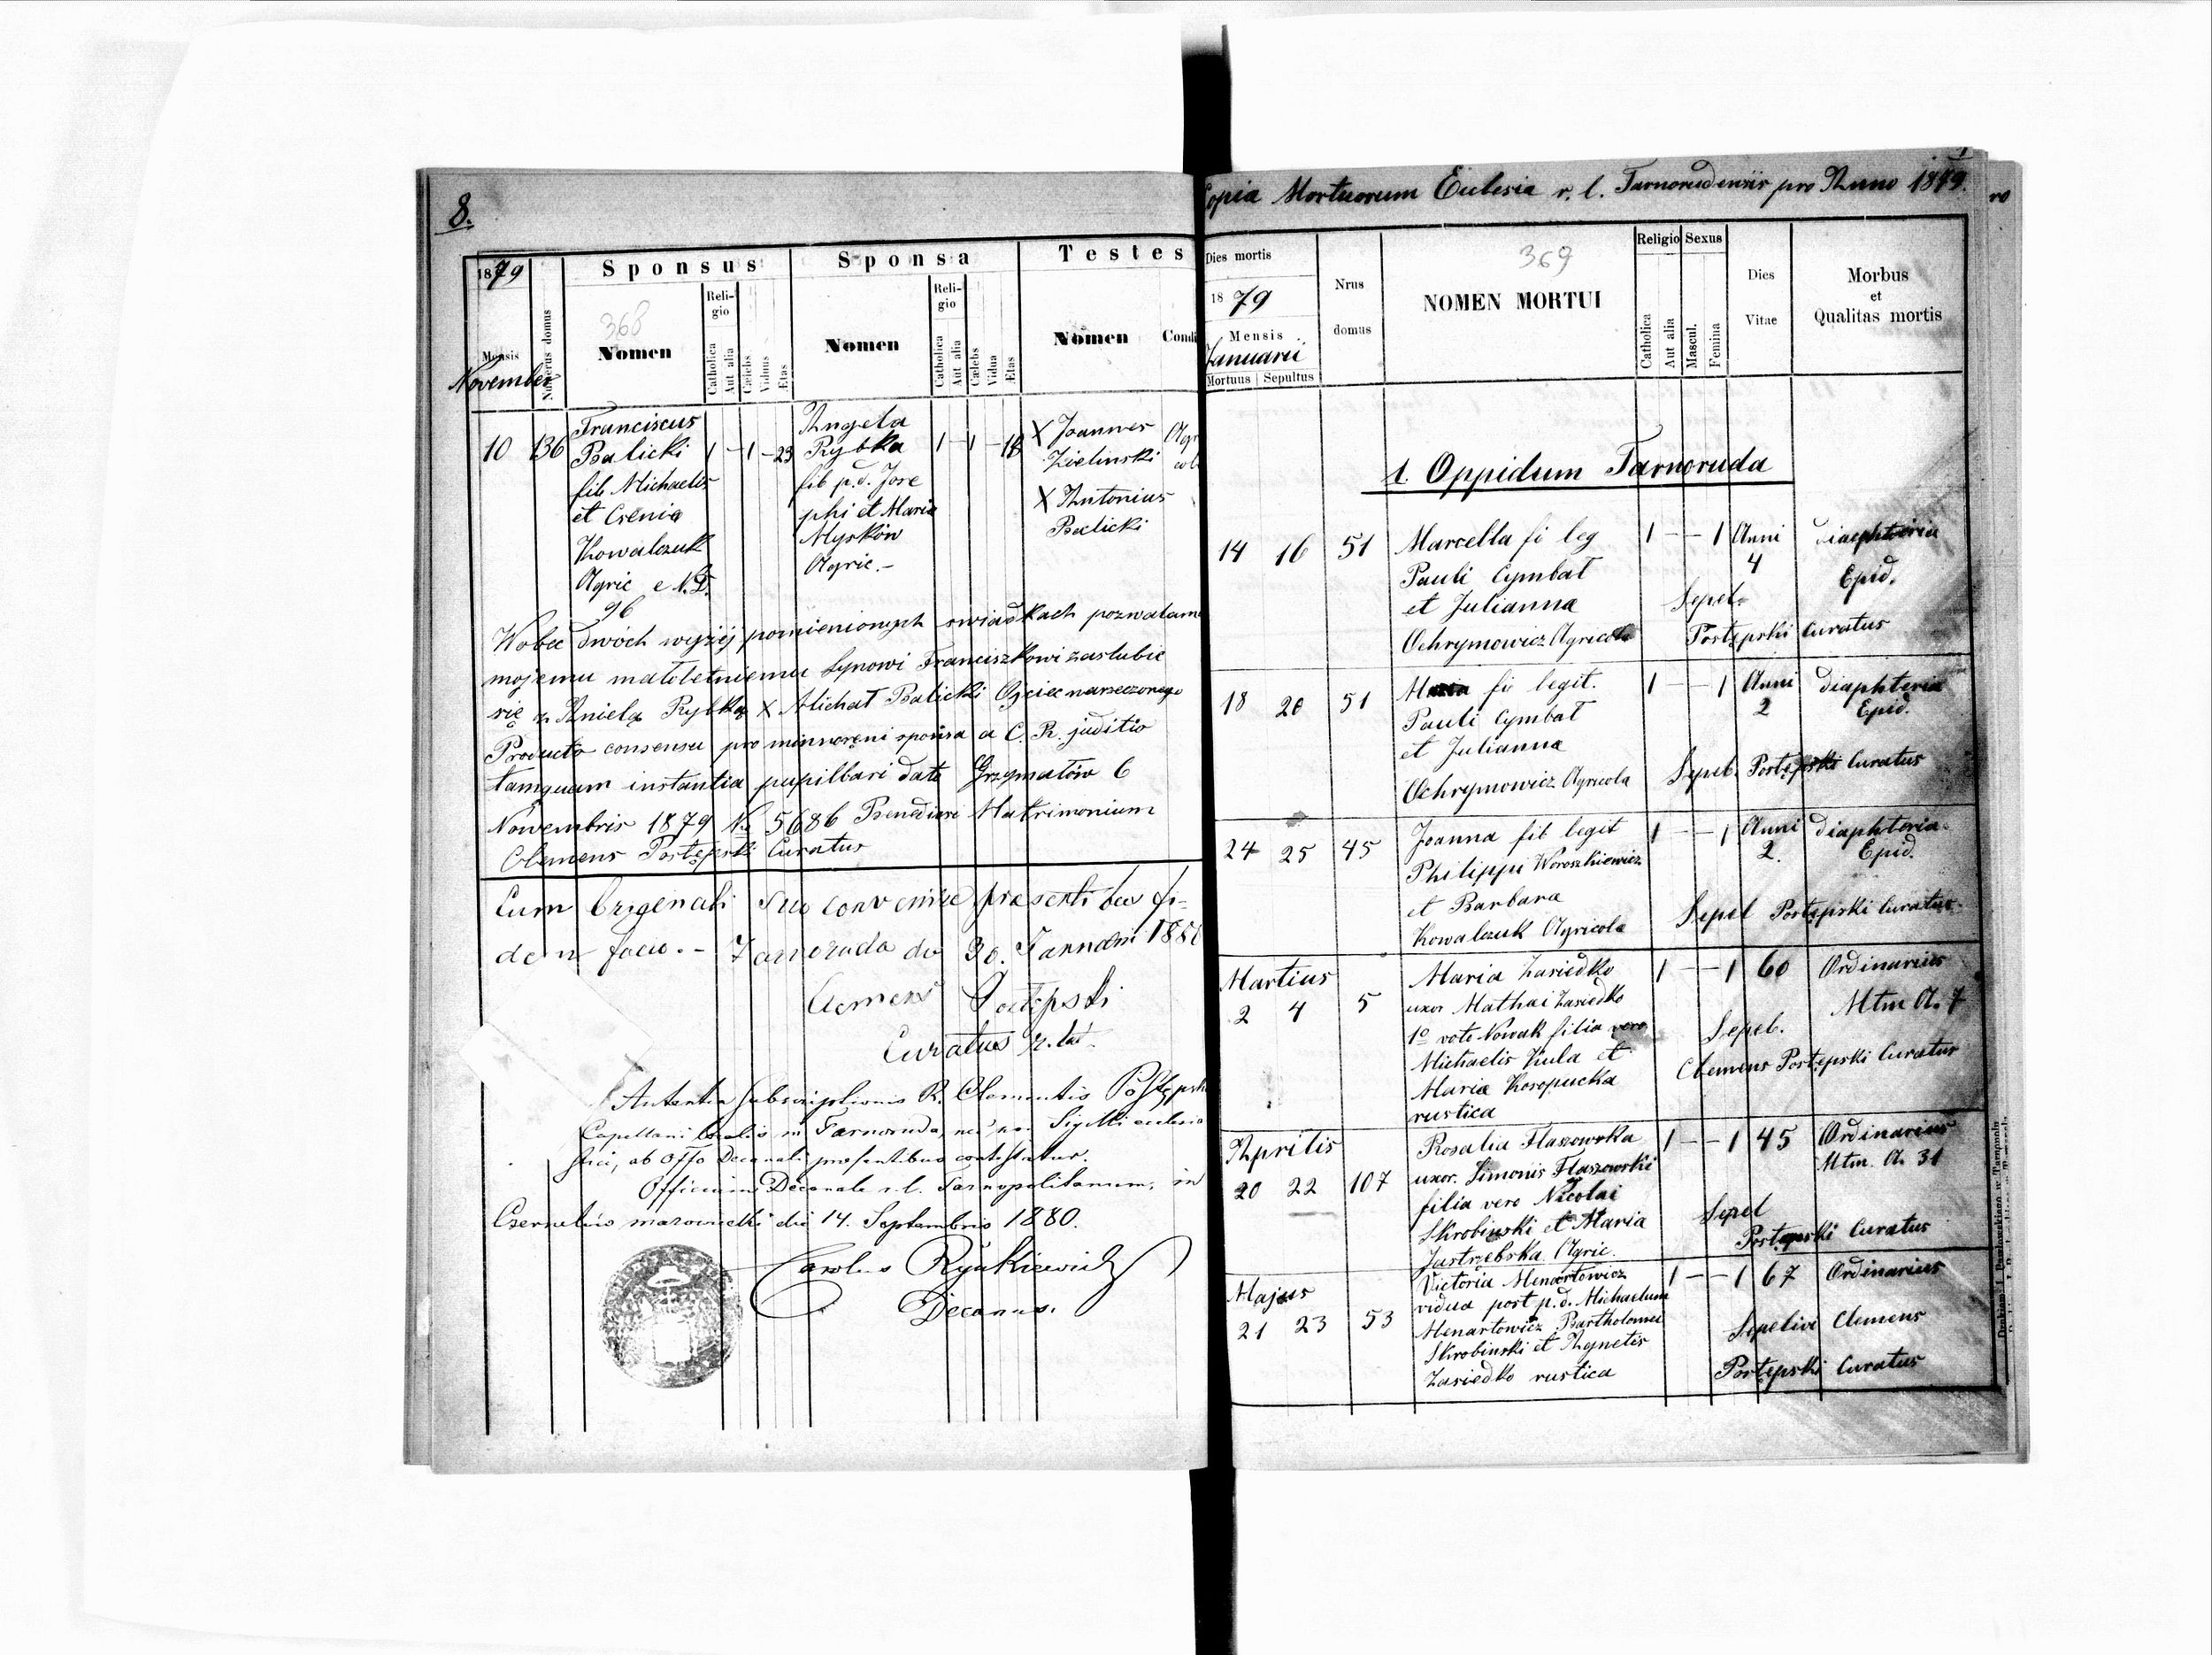 8.
1879
Mensis
November
Numerus domus
Sponsus
368
Nomen
Religio
Catholica
Aut alia
Cælebs
Viduus
Ætas
Sponsa
Nomen
Religio
Catholica
Aut alia
Cælebs
Vidua
Ætas
Testes
Nomen
Condi
10 136 Franciscus
Balicki 1 - 1 - 23
fil. Michaelis
et Csenia
Kowalczuk
Agric e N.D.
96
Angela
Rybka 1 - 1 - 18
fil p.d. Jose
phi et Maria
Myśków
Agric. -
X Joannes Agri
Zielinski col
X Antonius
Balicki
Wobec dwóch wyżej pomienionych swiadkach pozwalam
mojemu małoletniemu Synowi Franciszkowi zaslubic
się z Anielą Rybką X Michał Balicki Ojciec narzeczonego
Producto consensu pro minnoreni sponsa a C. R. juditio
tamquam instantia pupillari dato Grzymałów 6
Novembris 1879 No 5686 Benedixi Matrimonium
Clemens Postępski Curatus
Cum Origenali suo convenire praesentibus fi-
dem facio. - Tarnoruda die 30. Januarii 188
Clemens Postępski
Curatus r. lat.
Autentia subscriptionis R. Clementis Postępski
Capellani localis in Tarnoruda, nec non Sigilli ecclesia
stici, ab Offo Decanali praesentibus contestatur.
Officium Decanale r. l. Tarnopolitanum, in
Czernelów mazowiecki die 14. Septembris 1880.
Carolus Ryńkiewicz
Decanus.
1
Copia Mortuorum Eclesia r. l. Tarnorudensis pro Anno 1879.
Dies mortis
1879
Mensis
Januarii
Mortuus Sepultus
Nrus
domus
369
NOMEN MORTUI
Religio
Catholica
Aut alia
Sexus
Mascul.
Femina
Dies
Vitae
Morbus
et
Qualitas mortis
1. Oppidum Tarnoruda
14 16 51 Marcella fi leg 1 - - 1 Anni diaphtoria
Pauli Cymbał 4 Epid.
et Julianna Sepel.
Ochrymowicz Agricola Postępski Curatus
18 20 51 Maria fi legit. 1 - - 1 Anni diaphteria
Pauli Cymbał 2 Epid.
et Julianna
Ochrymowicz Agricola Sepel. Postępski Curatus
24 25 45 Joanna fil legit 1 - - 1 Anni diaphteria
Philippi Woroszkiewicz 2. Epid.
et Barbara
Kowalczuk Agricola Sepel Postępski Curatus
Martius
2 4 5 Maria Zasiedko 1 - - 1 60 Ordinarius
uxor Mathai Zasiedko Mtm A. 7
1o voto Nowak filia vero Sepel.
Michaelis Kula et Clemens Postępski Curatus
Maria Koropucka
rustica
Aprilis
20 22 107 Rosalia Flaszowska 1 - - 1 45 Ordinarius
uxor. Simonis Flaszowski Mtm. A. 31
filia vero Nicolai
Skrobinski et Maria Sepel
Jastrzębska Agric. Postępski Curatus
Majus
21 23 53 Victoria Menartowicz 1 - - 1 67 Ordinarius
vidua post p.d. Michaelum
Menartowicz Bartholomei Sepelivi Clemens
Skrobinski et Agnetis
Zasiedko rustica Postępski Curatus